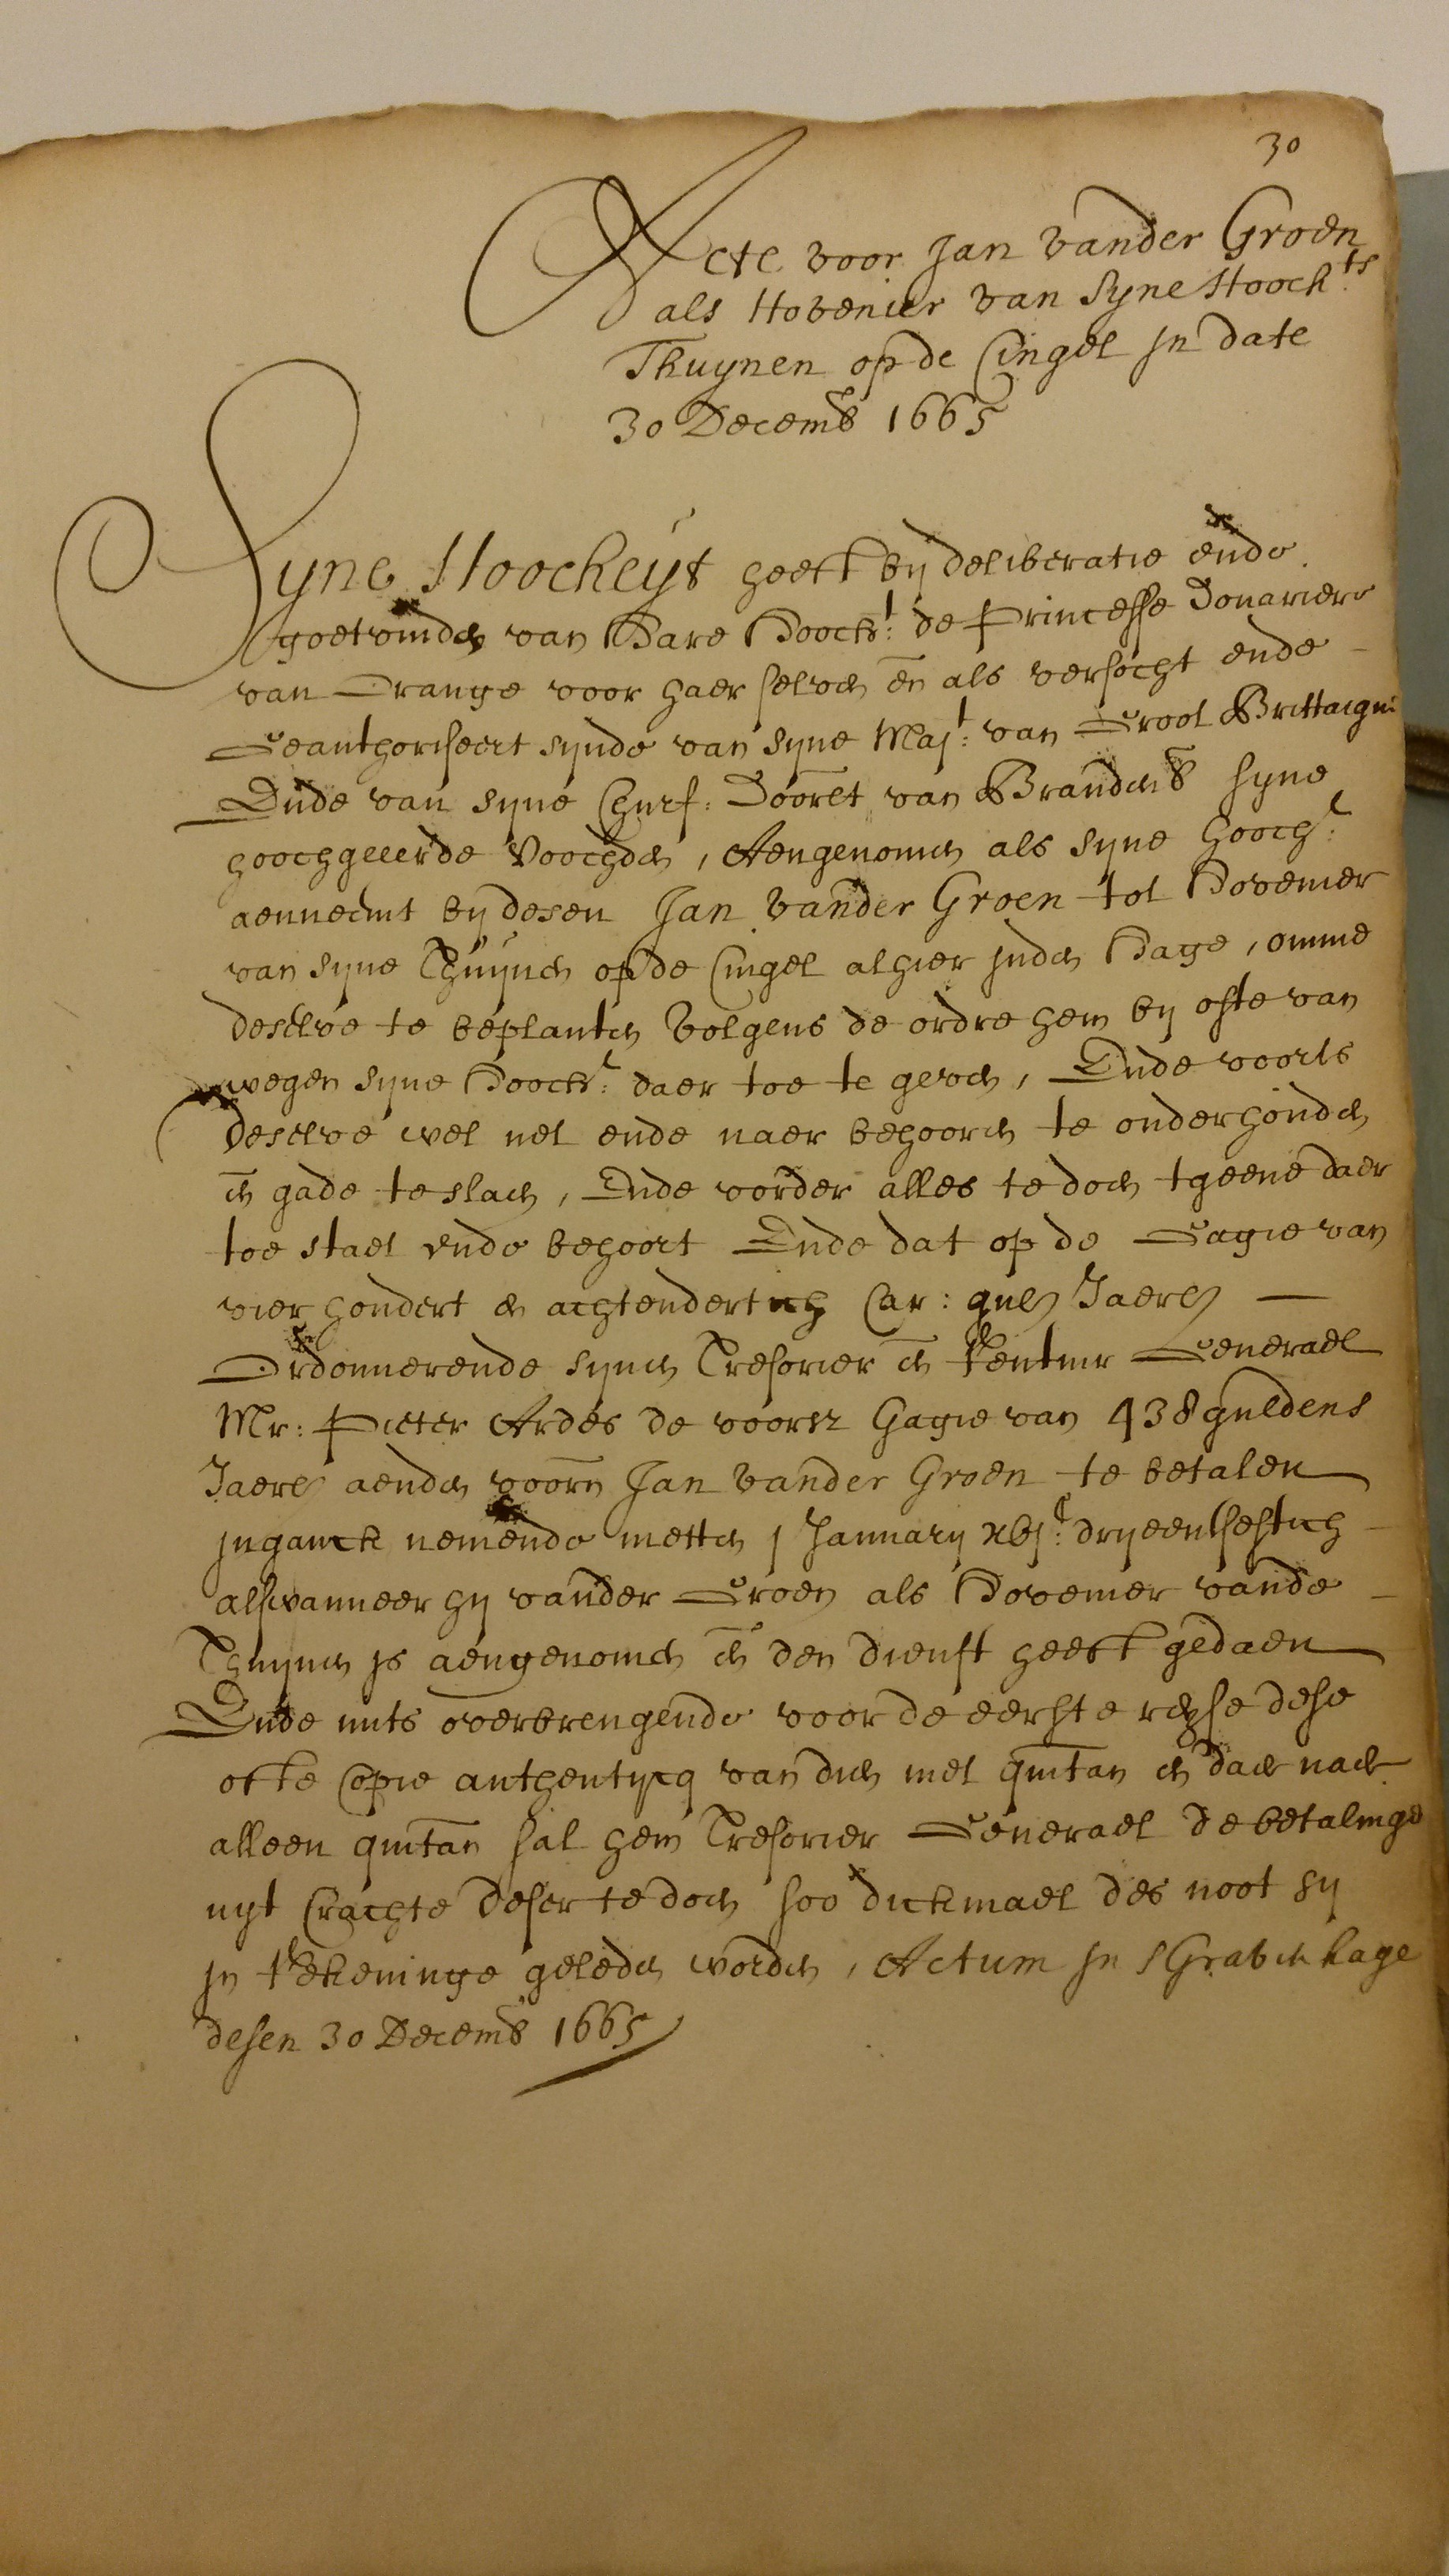 30
Acte voor Jan vander Groen
als Hovenier van Syne Hooch:ts
Thuynen op de Cingel in date
30 Decemb 1665
Syne Hoocheyt heeft bij deliberatie ende
goetvinden van Hare Hooch:t de Princesse Douariere
van Orange voor haer selven en als versocht ende
Geauthoriseert synde van syne Maj:t van Groot Brittaigne
Ende van syne Churf: Doorlt van Brandenb syne
hoochgeeerde Voochden, Aengenomen als syne Hooch:t
aenneemt bij desen Jan vander Groen tot Hovenier
van syne Thuynen op de Cingel alhier inden Hage, omme
deselve te beplanten volgens de ordre hem bij ofte van
wegen syne Hooch:t daer toe te geven, Ende voorts
deselve wel net ende naer behooren te onderhouden
en gade te slaen, Ende vorder alles te doen tgeene daer
toe staet ende behoort Ende dat op de Gagie van
vier hondert en achtendertich Car: guls Jaerls —
Ordonnerende synen Tresorier en Rentmr Generael
Mr: Pieter Ardes de voorsz Gagie van 438 guldens
Jaerls aenden voorn Jan vander Groen te betalen
inganck nemende metten 1 January xvj:c dryeentsestich
alswanneer hij vander Groen als Hovenier vande
Thuynen is aengenomen en den dienst heeft gedaen
Ende mits overbrengende voor de eerste reyse dese
ofte Copie authentycq van dien met quitan en daer naer
alleen quitan sal hem Tresorier Generael de betalinge
uyt Crachte deser te doen soo dickmael des noot sy
in Rekeninge geleden worden, Actum in sGravenhage
desen 30 Decemb 1665